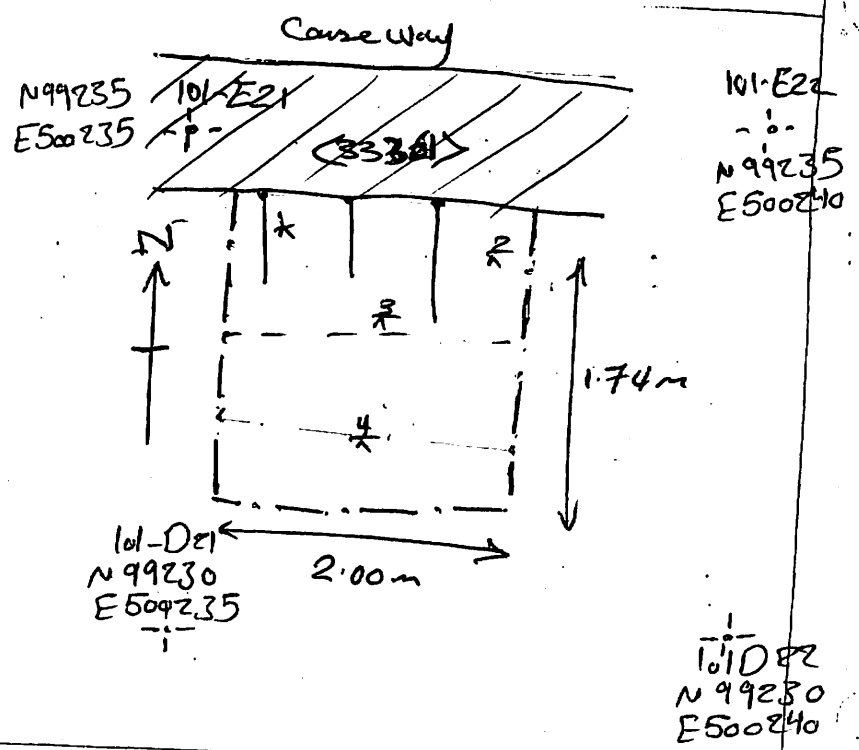 Causeway
N99235
E500235
101-E21
101-E22
N99235
E500240
N
1
2
3
4
1.74m
2.00m
101-D21
N99230
E500235
101D22
N99230
E500240